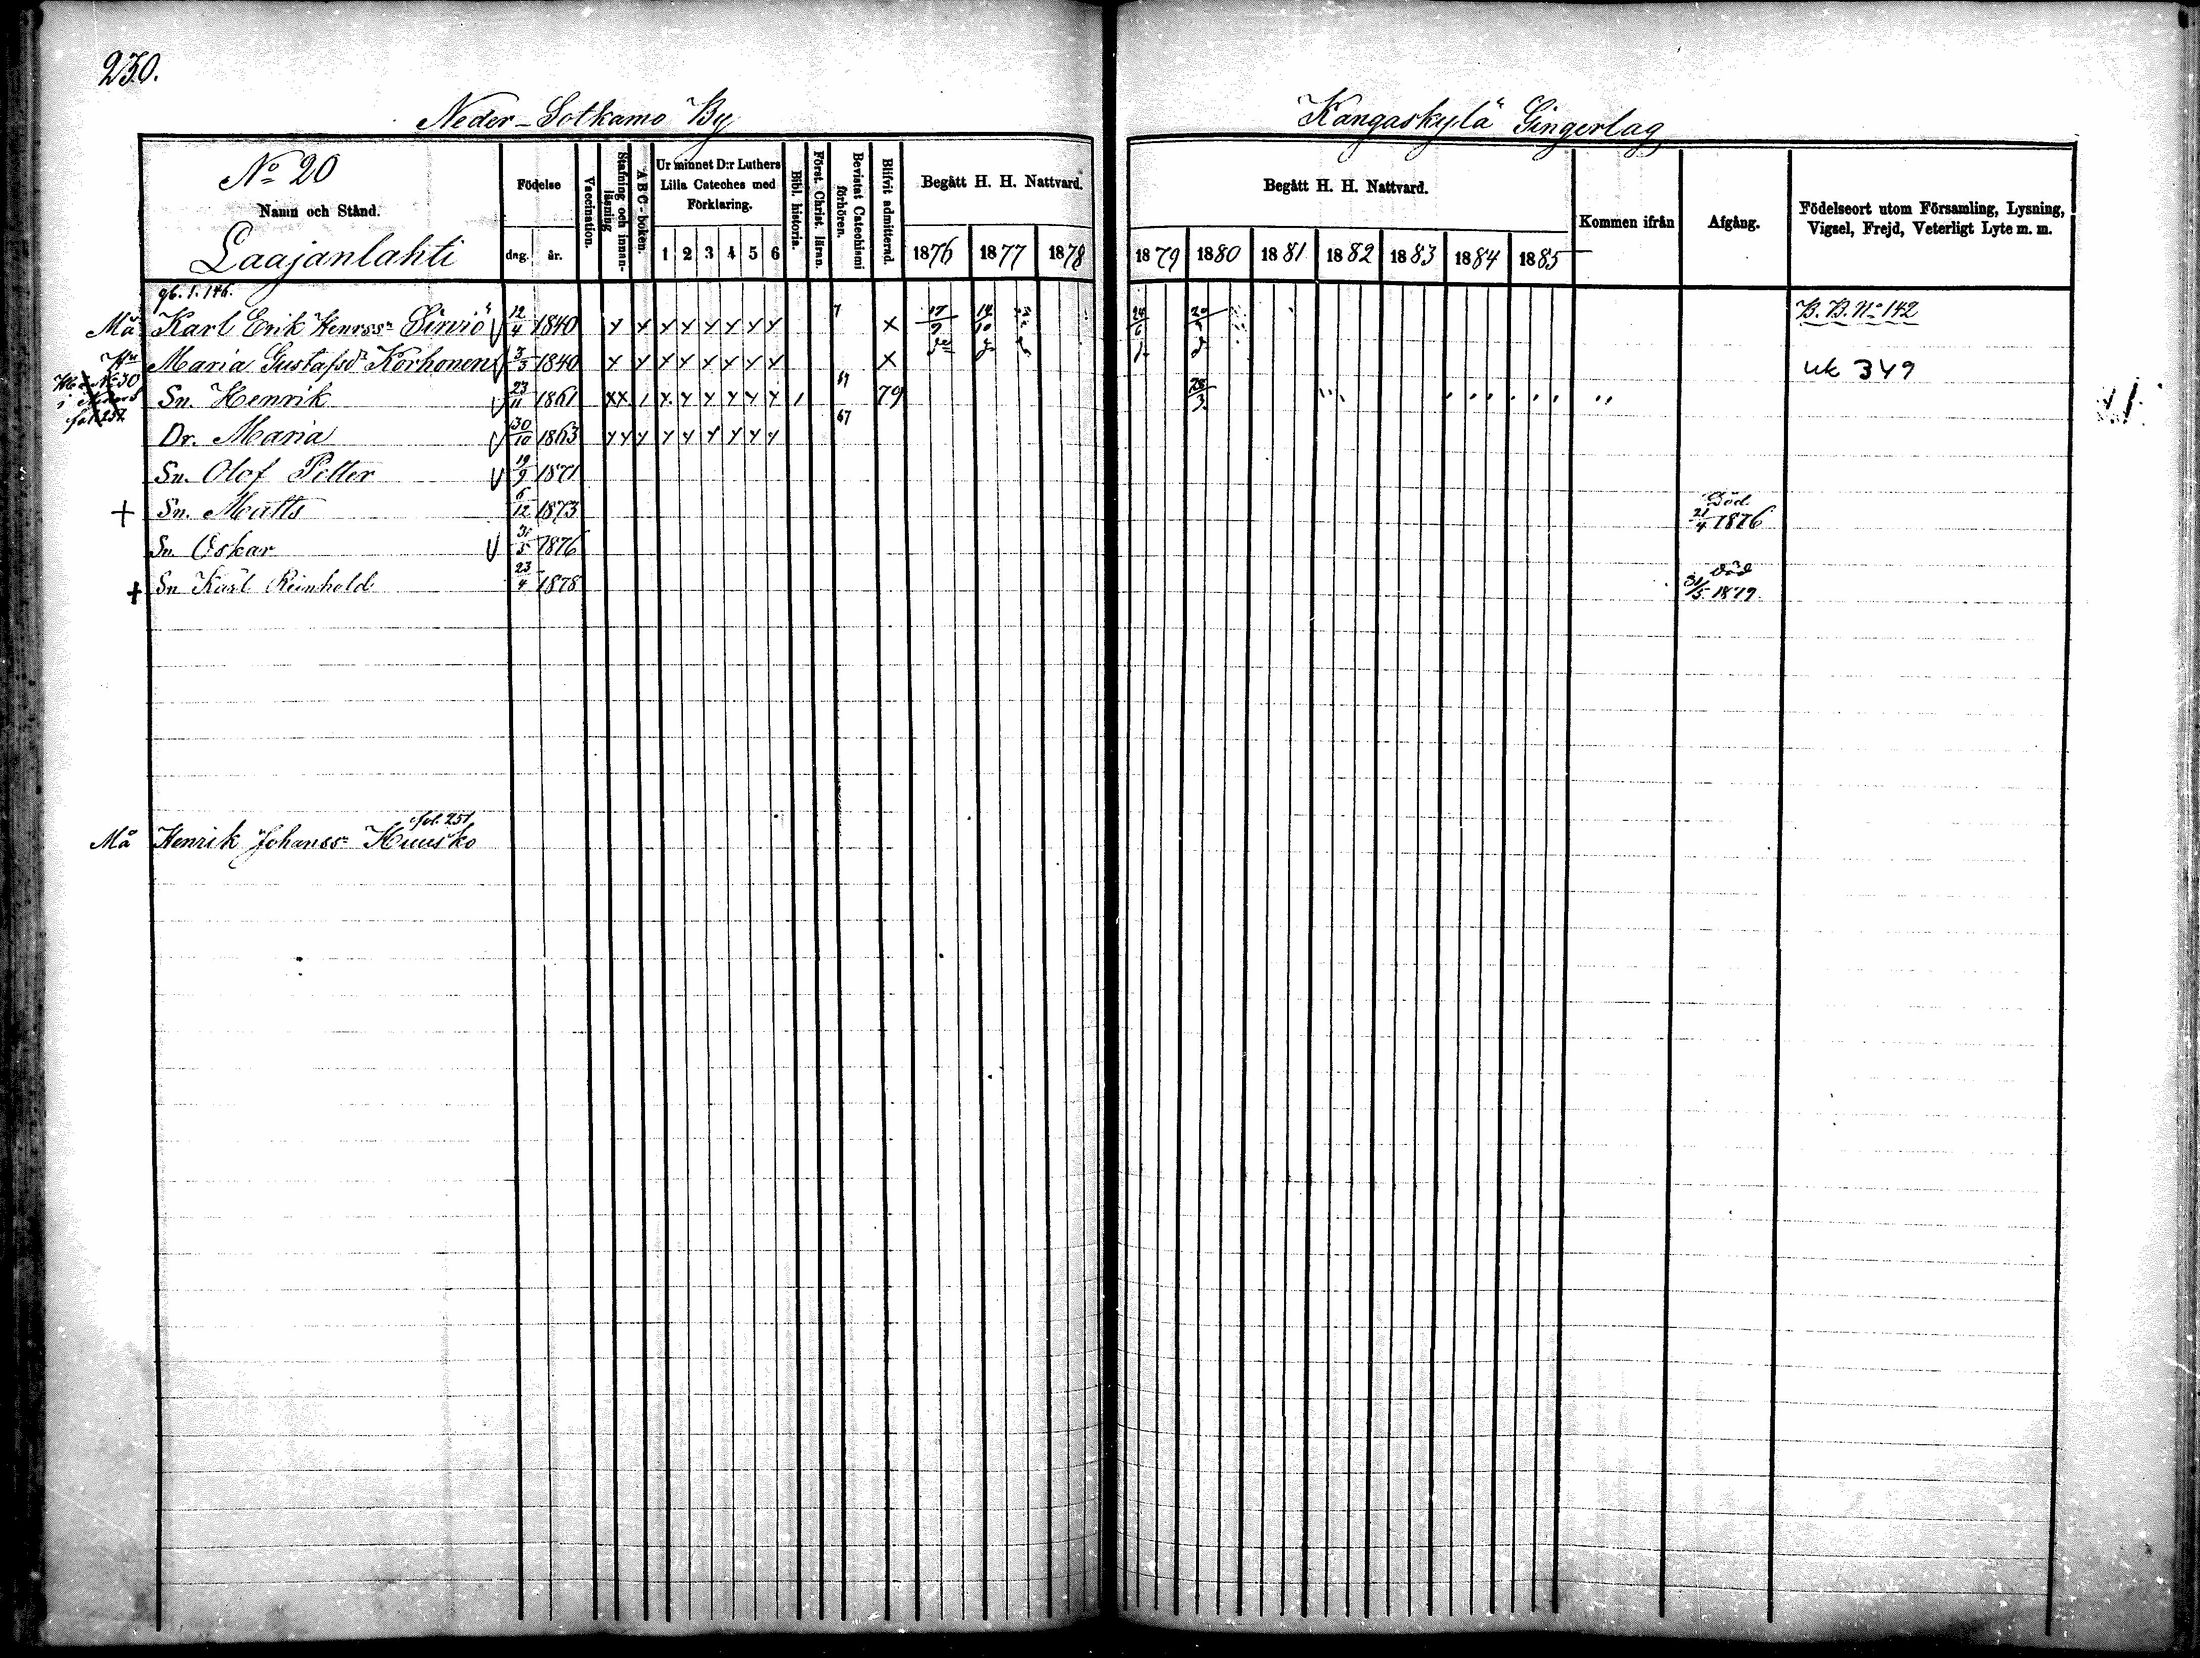 230.
Neder-Sotkamo By
Kangaskylä Gingerlag
No 20
Namn och Stånd.
Laajanlahti
Födelse
dag. år.
Vaccination.
Stafning och innanläsning
A B C-boken.
Ur minnet D:r Luthers Lilla Cateches med Förklaring.
1 2 3 4 5 6
Bibl. historia.
Först. Christ. läran.
Bevistat Catechismi förhören.
Blifvit admitterad.
Begått H. H. Nattvard.
1876 1877 1878
Begått H. H. Nattvard.
1879 1880 1881 1882 1883 1884 1885
Kommen ifrån
Afgång.
Födelseort utom Församling, Lysning, Vigsel, Frejd, Veterligt Lyte m. m.
gb. s. 146.
Må Karl Erik Henrss:n Sirviö 12/4 1840 B. B. No 142
Hu Maria Gustafsd:r Korhonen 3/3 1840 uk 349
Sn. Henrik 23/11 1861 79 28/3
Dr. Maria 30/10 1863 67
Sn. Olof Petter 19/9 1871
+ Sn. Matts 6/12 1873 Död 21/4 1876
Sn Oskar 1876
+ Sn Karl Reinhold 23/4 1878 död 31/5 1879
fol. 251
Må Henrik Johanss:n Huusko